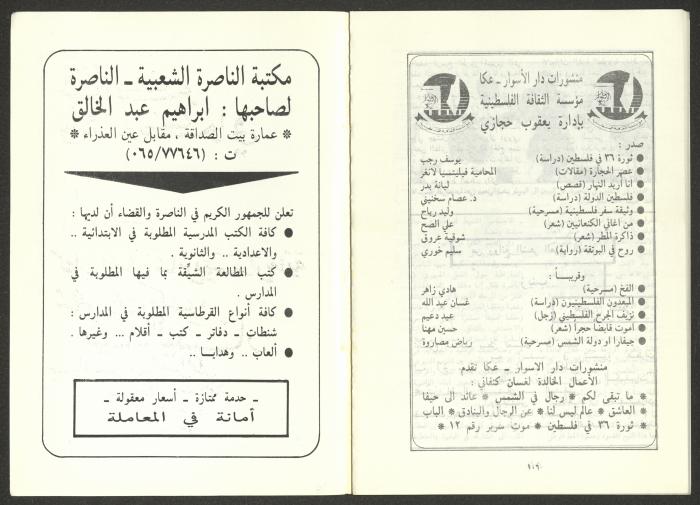 منشورات دار الأسوار ـ عكا
مؤسسة الثقافة الفلسطينية
بإدارة يعقوب حجازي
صدر :
● ثورة ٣٦ في فلسطين (دراسة) يوسف رجب
● عصر الحجارة (مقالات) المحامية فيليتسيا لانغر
● أنا أريد النهار (قصص) ليانة بدر
● فلسطين الدولة (دراسة) د. عصام سخنيني
● وثيقة سفر فلسطينية (مسرحية) وليد رباح
● من أغاني الكنعانيين (شعر) علي الصح
● ذاكرة المطر (شعر) شوقية عروق
● روح في البوتقة (رواية) سليم خوري
وقريبـاً :
● الفخ (مسرحية) هادي زاهر
● المبعدون الفلسطينيون (دراسة) غسان عبد الله
● نزيف الجرح الفلسطيني (زجل) عبد دعيم
● أموت قابضا حجراً (شعر) حسين مهنا
● جيفارا او دولة الشمس (مسرحية) رياض مصاروة
منشورات دار الاسوار ـ عكا تقدم
الأعمال الخالدة لغسان كنفاني :
* ما تبقى لكم * رجال في الشمس * عائد الى حيفا
* العاشق * عالم ليس لنا * عن الرجال والبنادق * الباب
* ثورة ٣٦ في فلسطين * موت سرير رقم ١٢ *
١٠٩
مكتبة الناصرة الشعبية ـ الناصرة
لصاحبها : ابراهيم عبد الخالق
* عمارة بيت الصداقة ، مقابل عين العذراء *
ت : (٠٦٥/٧٧٦٤٦)
تعلن للجمهور الكريم في الناصرة والقضاء أن لديها :
● كافة الكتب المدرسية المطلوبة في الابتدائية ..
والاعدادية .. والثانوية .
● كتب المطالعة الشيّقة بما فيها المطلوبة في
المدارس .
● كافة أنواع القرطاسية المطلوبة في المدارس :
شنطات ـ دفاتر ـ كتب ـ أقلام ... وغيرها .
● ألعاب .. وهدايـا ..
ـ خدمة ممتازة ـ أسعار معقولة ـ
أمانة في المعاملة